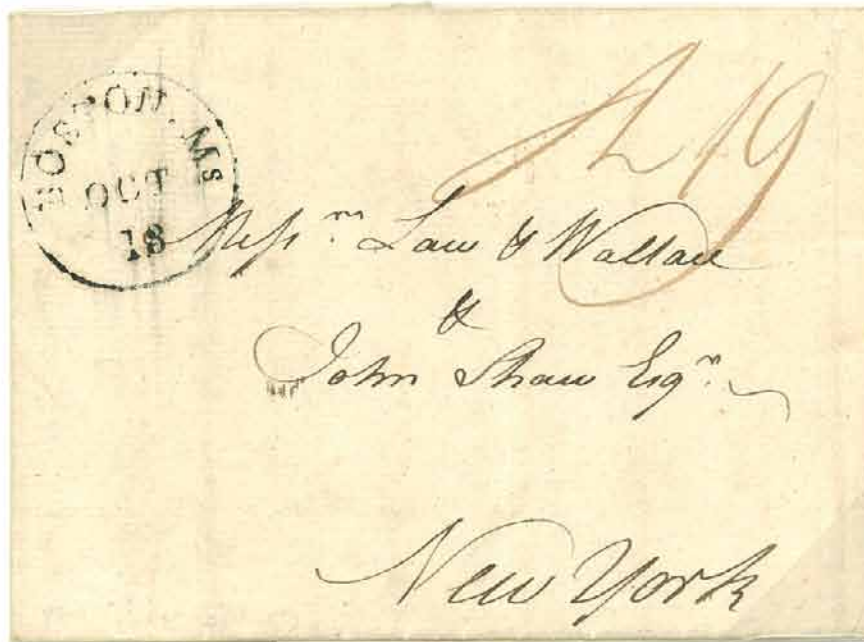 BOSTON. Ms
OCT
18
19
Messrs Law & Wallace
&
John Shaw Esqr.
New York